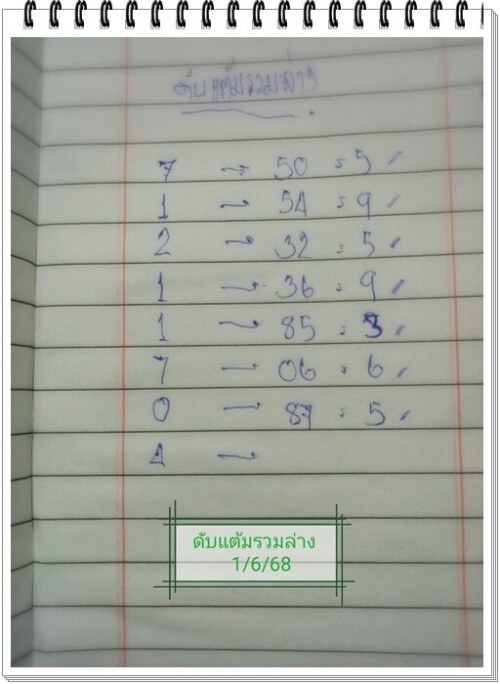 ดับแต้มรวมล่าง
7 → 50 = 5 /
1 → 54 = 9 /
2 → 32 = 5 /
1 → 36 = 9 /
1 → 85 = 3 /
7 → 06 = 6 /
0 → 87 = 5 /
4 →
ดับแต้มรวมล่าง
1/6/68